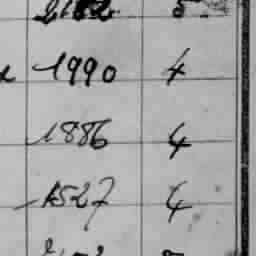 2182 5
1990 4
1886 4
1527 4